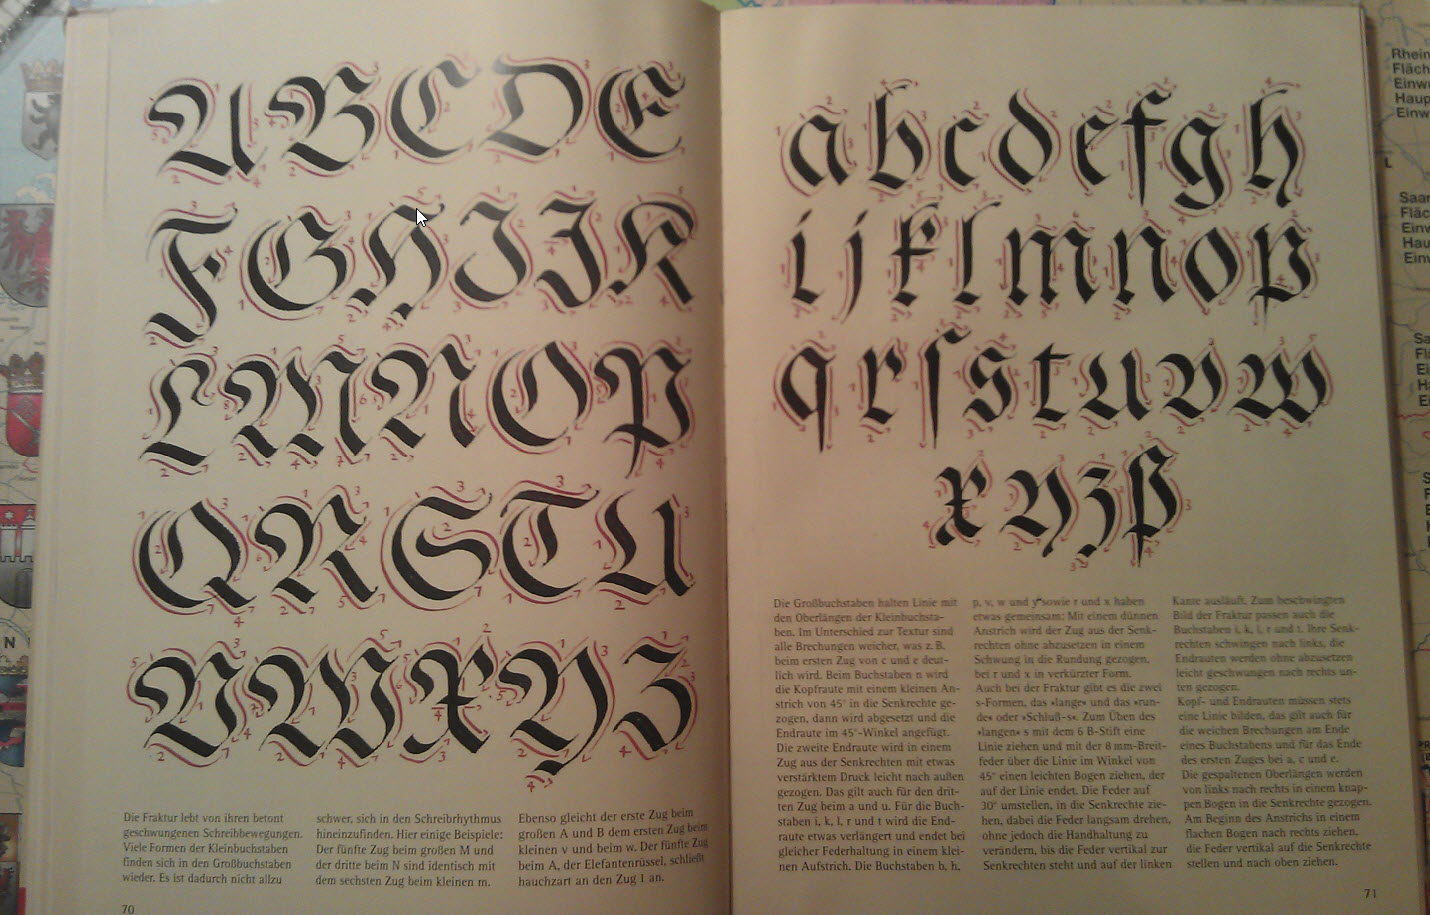 A B C D E
F G H I J K
L M N O P
Q R S T U
V W X Y Z
Die Fraktur lebt von ihren betont
geschwungenen Schreibbewegungen.
Viele Formen der Kleinbuchstaben
finden sich in den Großbuchstaben
wieder. Es ist dadurch nicht allzu
schwer, sich in den Schreibrhythmus
hineinzufinden. Hier einige Beispiele:
Der fünfte Zug beim großen M und
der dritte beim N sind identisch mit
dem sechsten Zug beim kleinen m.
Ebenso gleicht der erste Zug beim
großen A und B dem ersten Zug beim
kleinen v und beim w. Der fünfte Zug
beim A, der Elefantenrüssel, schließt
hauchzart an den Zug 1 an.
70
a b c d e f g h
i j k l m n o p
q r ſ s t u v w
x y z ß
Die Großbuchstaben halten Linie mit
den Oberlängen der Kleinbuchsta-
ben. Im Unterschied zur Textur sind
alle Brechungen weicher, was z. B.
beim ersten Zug von c und e deut-
lich wird. Beim Buchstaben n wird
die Kopfraute mit einem kleinen An-
strich von 45° in die Senkrechte ge-
zogen, dann wird abgesetzt und die
Endraute im 45°-Winkel angefügt.
Die zweite Endraute wird in einem
Zug aus der Senkrechten mit etwas
verstärktem Druck leicht nach außen
gezogen. Das gilt auch für den drit-
ten Zug beim a und u. Für die Buch-
staben i, k, l, r und t wird die End-
raute etwas verlängert und endet bei
gleicher Federhaltung in einem klei-
nen Aufstrich. Die Buchstaben b, h,
p, v, w und y sowie r und x haben
etwas gemeinsam: Mit einem dünnen
Anstrich wird der Zug aus der Senk-
rechten ohne abzusetzen in einem
Schwung in die Rundung gezogen,
bei r und x in verkürzter Form.
Auch bei der Fraktur gibt es die zwei
s-Formen, das »lange« und das »run-
de« oder »Schluß-s«. Zum Üben des
»langen« s mit dem 6 B-Stift eine
Linie ziehen und mit der 8 mm-Breit-
feder über die Linie im Winkel von
45° einen leichten Bogen ziehen, der
auf der Linie endet. Die Feder auf
30° umstellen, in die Senkrechte zie-
hen, dabei die Feder langsam drehen,
ohne jedoch die Handhaltung zu
verändern, bis die Feder vertikal zur
Senkrechten steht und auf der linken
Kante ausläuft. Zum beschwingten
Bild der Fraktur passen auch die
Buchstaben i, k, l, r und t. Ihre Senk-
rechten schwingen nach links, die
Endrauten werden ohne abzusetzen
leicht geschwungen nach rechts un-
ten gezogen.
Kopf- und Endrauten müssen stets
eine Linie bilden, das gilt auch für
die weichen Brechungen am Ende
eines Buchstabens und für das Ende
des ersten Zuges bei a, c und e.
Die gespaltenen Oberlängen werden
von links nach rechts in einem knap-
pen Bogen in die Senkrechte gezogen.
Am Beginn des Anstrichs in einem
flachen Bogen nach rechts ziehen,
die Feder vertikal auf die Senkrechte
stellen und nach oben ziehen.
71
Rhein
Fläch
Einw
Haup
Einw
L
Saar
Fläc
Einw
Hau
Einw
N